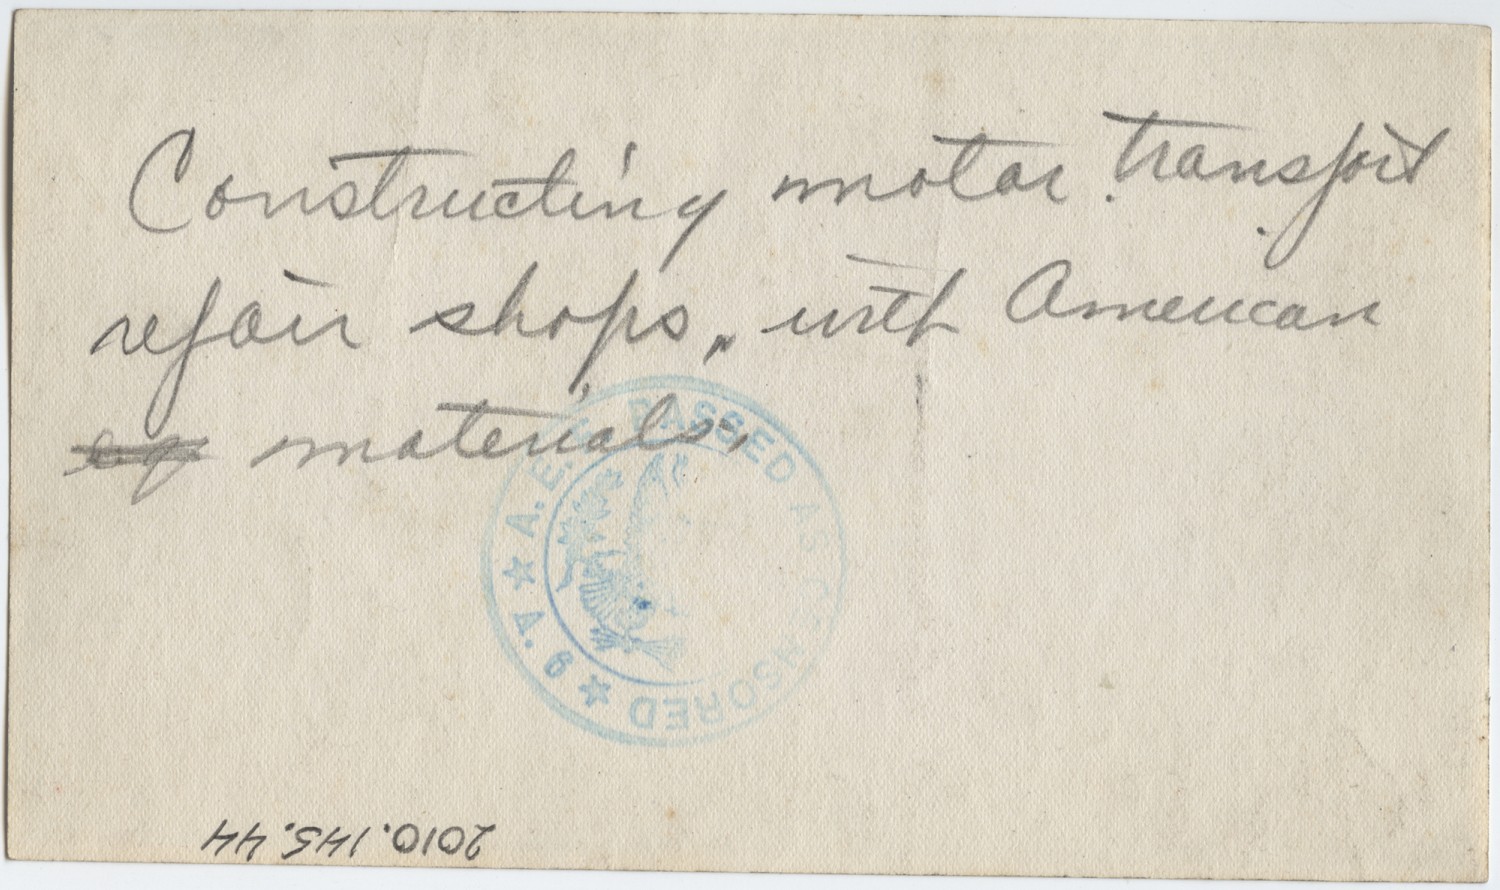 Constructing motor transport
repair shops, with American
eq materials,
A.E.F. PASSED AS CENSORED
2010.145.44